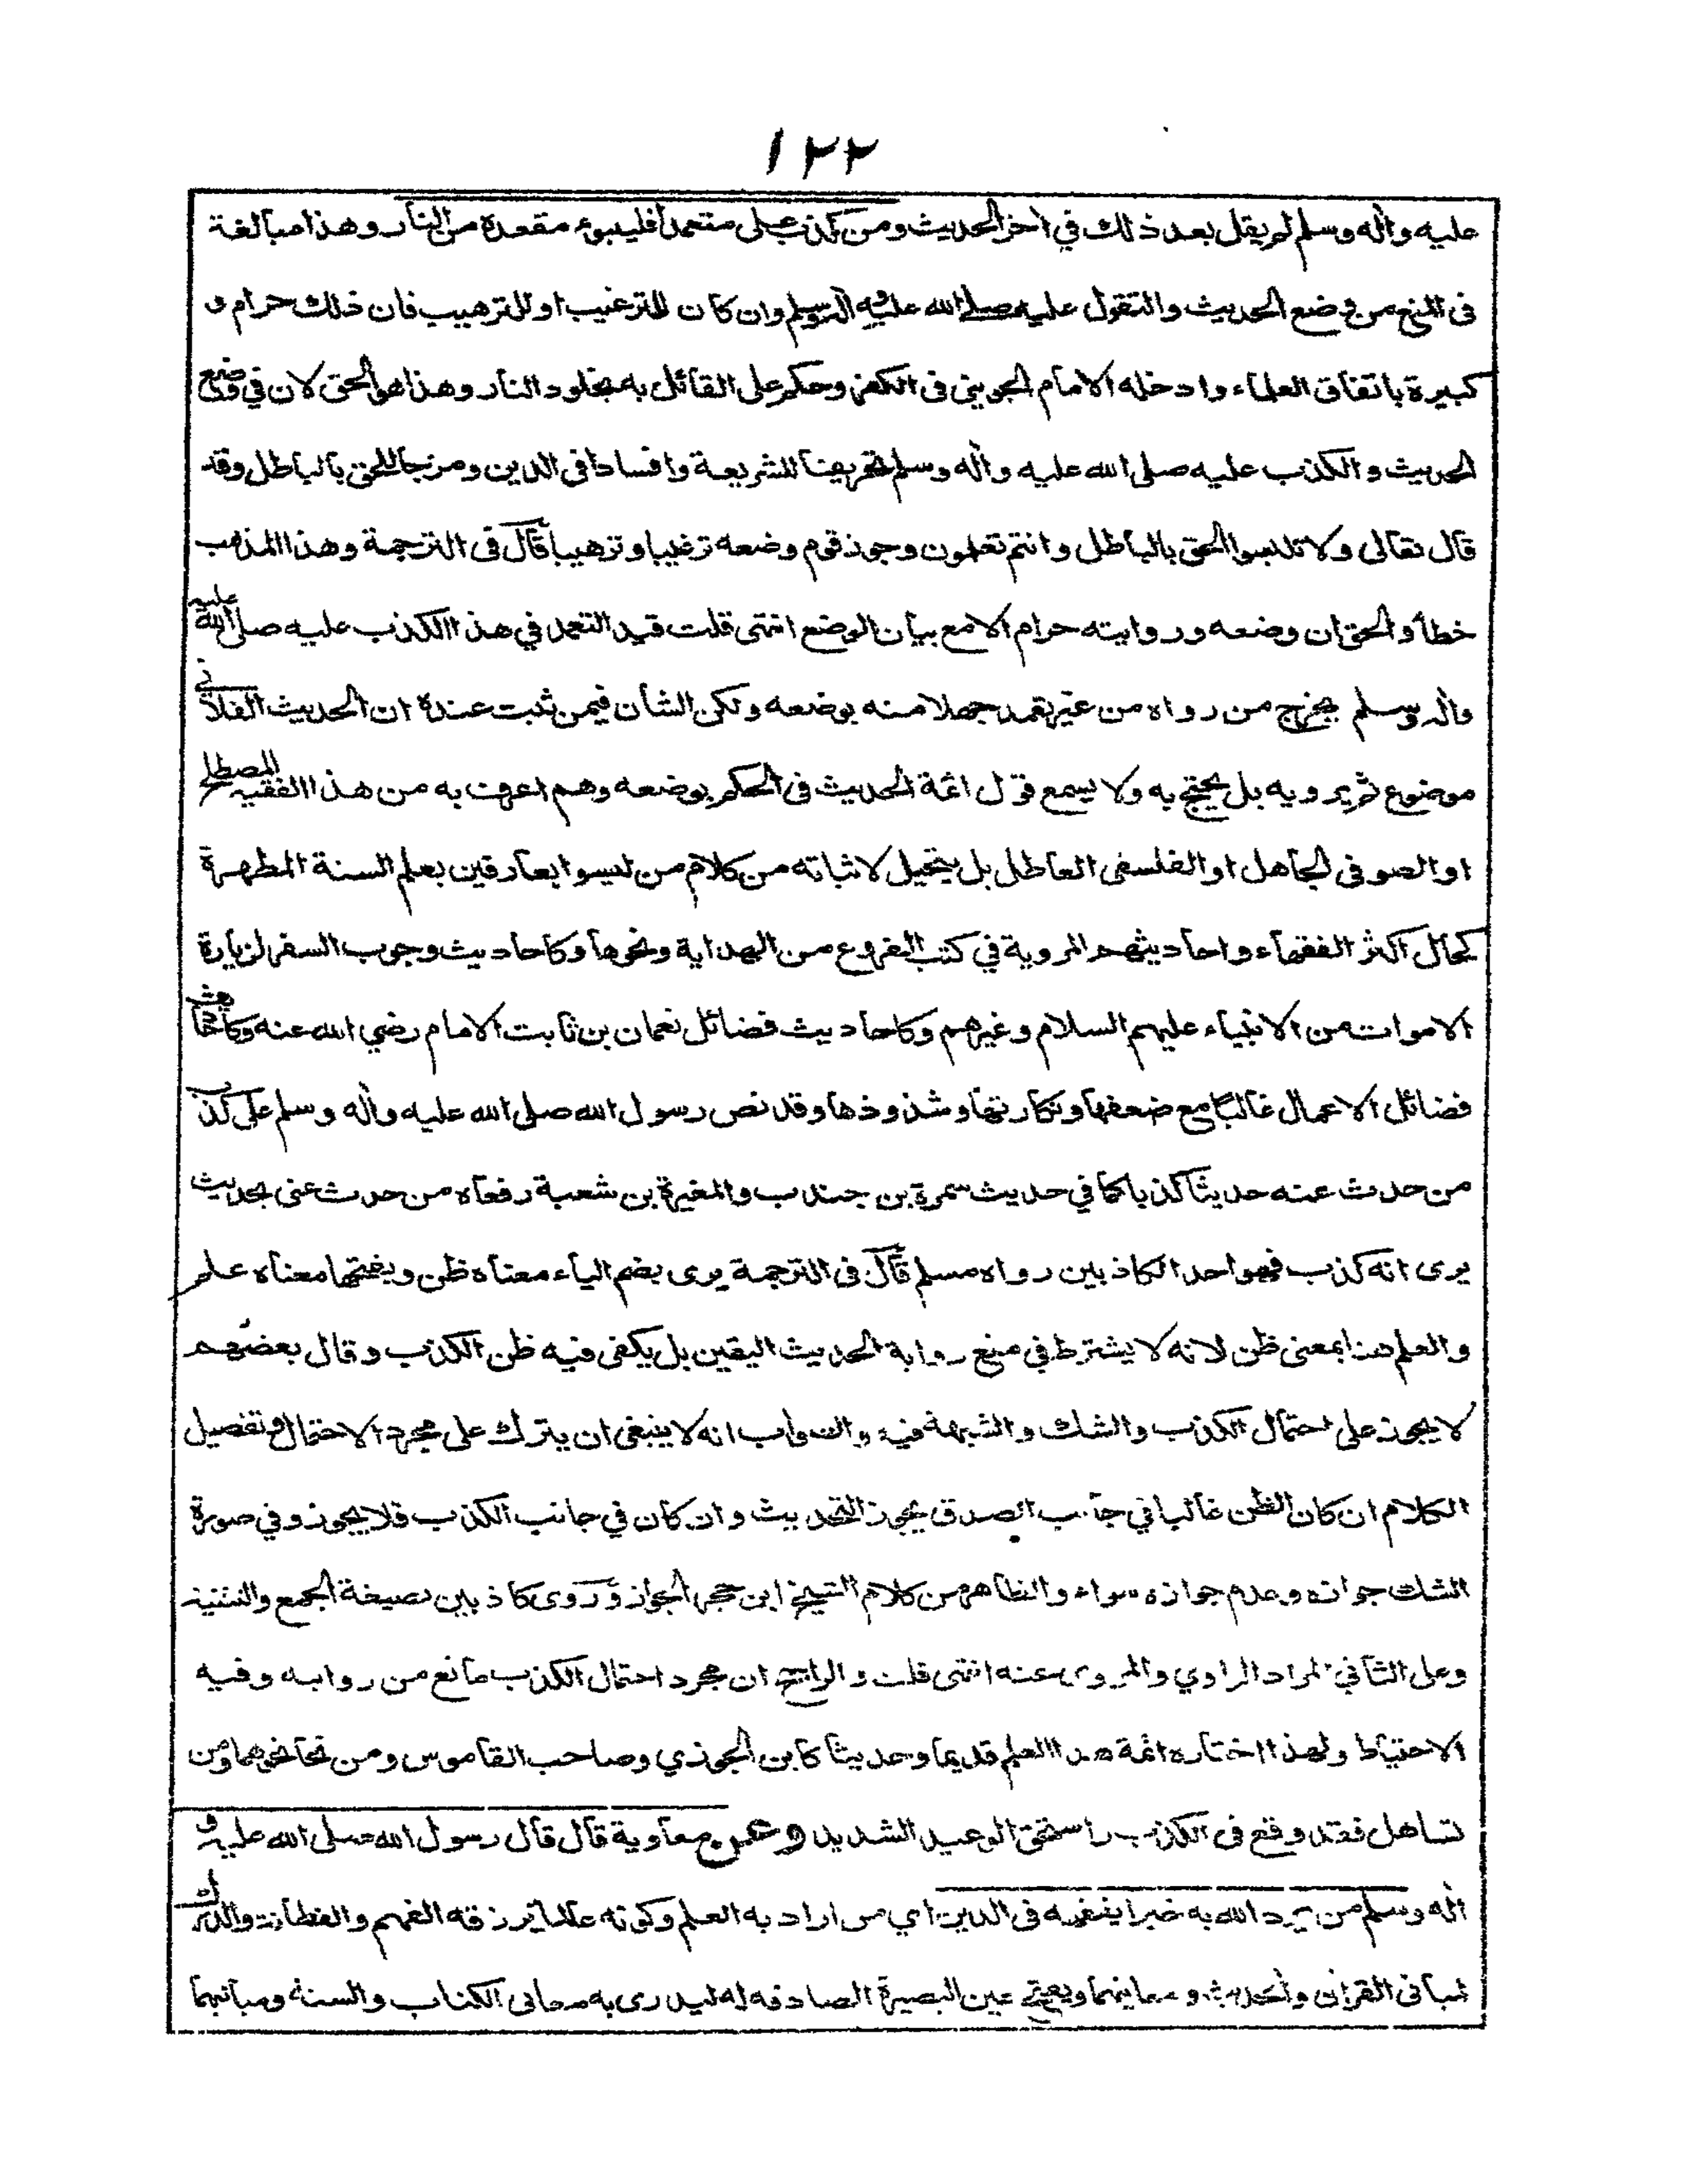 ١٢٢
عليه وآله وسلم لم يقل بعد ذلك في آخر الحديث ومن كذب علي متعمدا فليتبوء مقعده من النار وهذا مبالغة
في المنع من وضع الحديث والتقول عليه صلى الله عليه وآله وسلم وان كان للترغيب او للترهيب فان ذلك حرام و
كبيرة باتفاق العلماء وادخله الامام الجويني في الكفر وحكم على القائل به بخلود النار وهذا هو الحق لان في وضع
الحديث والكذب عليه صلى الله عليه وآله وسلم تحريفا للشريعة وافسادا في الدين ومزجا للحق بالباطل وقد
قال تعالى ولا تلبسوا الحق بالباطل وانتم تعلمون وجوز قوم وضعه ترغيبا وترهيبا قال في الترجمة وهذا المذهب
خطأ والحق ان وضعه وروايته حرام الا مع بيان الوضع انتهى قلت قيد التعمد في هذا الكذب عليه صلى الله عليه
وآله وسلم يخرج من رواه من غير تعمد جهلا منه بوضعه ولكن الشأن فيمن ثبت عنده ان الحديث الفلاني
موضوع ثم يرويه بل يحتج به ولا يسمع قول ائمة الحديث في الحكم بوضعه وهم اعرف به من هذا الفقيه المصطلح
او الصوفي الجاهل او الفلسفي العاطل بل يتحيل لاثباته من كلام من ليسوا بعارفين بعلم السنة المطهرة
كحال اكثر الفقهاء واحاديثهم المروية في كتب الفروع من الهداية ونحوها وكاحاديث وجوب السفر لزيارة
الاموات من الانبياء عليهم السلام وغيرهم وكاحاديث فضائل نعمان بن ثابت الامام رضي الله عنه وكاحاديث
فضائل الاعمال غالبا مع ضعفها ونكارتها وشذوذها وقد نص رسول الله صلى الله عليه وآله وسلم على كذب
من حدث عنه حديثا كذبا كما في حديث سمرة بن جندب والمغيرة بن شعبة رفعاه من حدث عني بحديث
يرى انه كذب فهو احد الكاذبين رواه مسلم قال في الترجمة يرى بضم الياء معناه ظن وبفتحها معناه علم
والعلم هنا بمعنى ظن لانه لا يشترط في منع رواية الحديث اليقين بل يكفي فيه ظن الكذب وقال بعضهم
لا يجوز على احتمال الكذب والشك والشبهة فيه والصواب انه لا ينبغي ان يترك على مجرد الاحتمال وتفصيل
الكلام ان كان الظن غالبا في جانب الصدق يجوز التحديث وان كان في جانب الكذب فلا يجوز وفي صورة
الشك جوازه وعدم جوازه سواء والظاهر من كلام الشيخ ابن حجر الجواز وروى كاذبين بصيغة الجمع والتثنية
وعلى الثاني المراد الراوي والمروي عنه انتهى قلت والراجح ان مجرد احتمال الكذب مانع من روايه وفيه
الاحتياط ولهذا اختاره ائمة هذا العلم قديما وحديثا كابن الجوزي وصاحب القاموس ومن نحا نحوهما ومن
تساهل فقد وقع في الكذب واستحق الوعيد الشديد وعن معاوية قال قال رسول الله صلى الله عليه و
آله وسلم من يرد الله به خيرا يفقهه في الدين اي من اراد به العلم وكونه عالما يرزقه الفهم والفطانة والدرك
لمباني القرآن والحديث ومعانيهما ويفتح عين البصيرة الصادقه له ليدري به معاني الكتاب والسنة ومبانيهما